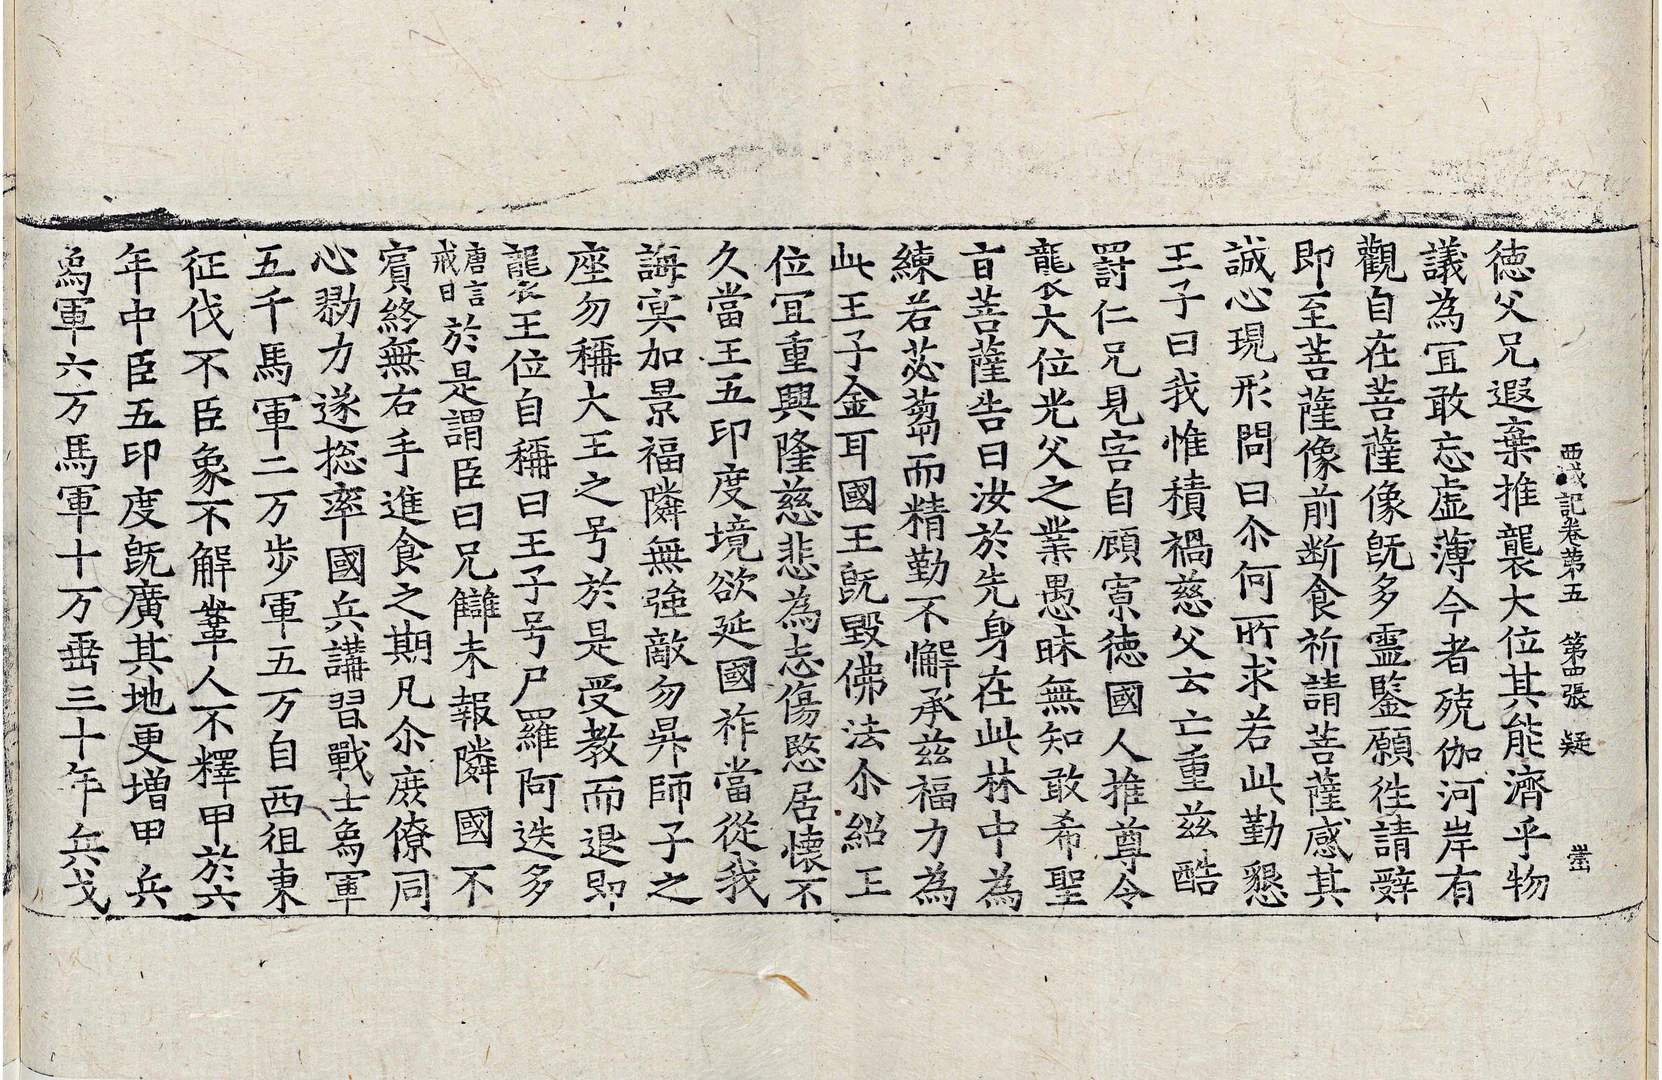 西域記卷苐五　第四張　疑
德父兄遐棄推襲大位其能濟乎物
議為冝敢忘虛薄今者殑伽河岸有
觀自在菩薩像旣多靈鑒願往請辤
即至菩薩像前断食祈請菩薩感其
誠心現形問曰尒何所求若此勤懇
王子曰我惟積禍慈父云亡重兹酷
罸仁兄見害自顧寡德國人推尊令
襲大位光父之業愚昧無知敢希聖
旨菩薩告曰汝於先身在此林中為
練若苾蒭而精勤不懈承兹福力為
此王子金耳國王旣毀佛法尒紹王
位冝重興隆慈悲為志傷愍居懷不
久當王五印度境欲延國祚當從我
誨冥加景福隣無強敵勿昇師子之
座勿稱大王之号於是受教而退即
襲王位自稱曰王子号尸羅阿迭多
唐言戒日於是謂臣曰兄讎未報隣國不
賓終無右手進食之期凡尒庶僚同
心勠力遂捴率國兵講習戰士象軍
五千馬軍二万步軍五万自西徂東
征伐不臣象不解鞌人不釋甲於六
年中臣五印度旣廣其地更增甲兵
象軍六万馬軍十万垂三十年兵戈